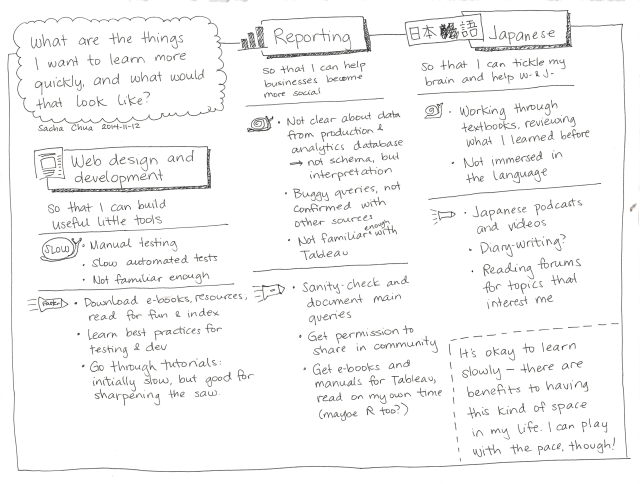 What are the things
I want to learn more
quickly, and what would
that look like?
Sacha Chua 2014-11-12
Web design and
development
So that I can build
useful little tools
SLOW
• Manual testing
• Slow automated tests
• Not familiar enough
Faster
• Download e-books, resources,
read for fun & index
• Learn best practices for
testing & dev
• Go through tutorials:
initially slow, but good for
sharpening the saw
Reporting
so that I can help
businesses become
more social
• Not clear about data
from production &
analytics database
→ not schema, but
interpretation
• Buggy queries, not
confirmed with
other sources
• Not familiar enough with
Tableau
• Sanity-check and
document main
queries
• Get permission to
share in community
• Get e-books and
manuals for Tableau,
read on my own time
(maybe R too?)
日本語
Japanese
so that I can tickle my
brain and help W- & J-.
• Working through
textbooks, reviewing
what I learned before
• Not immersed in
the language
• Japanese podcasts
and videos
• Diary-writing?
• Reading forums
for topics that
interest me
It's okay to learn
slowly – there are
benefits to having
this kind of space
in my life. I can play
with the pace, though!